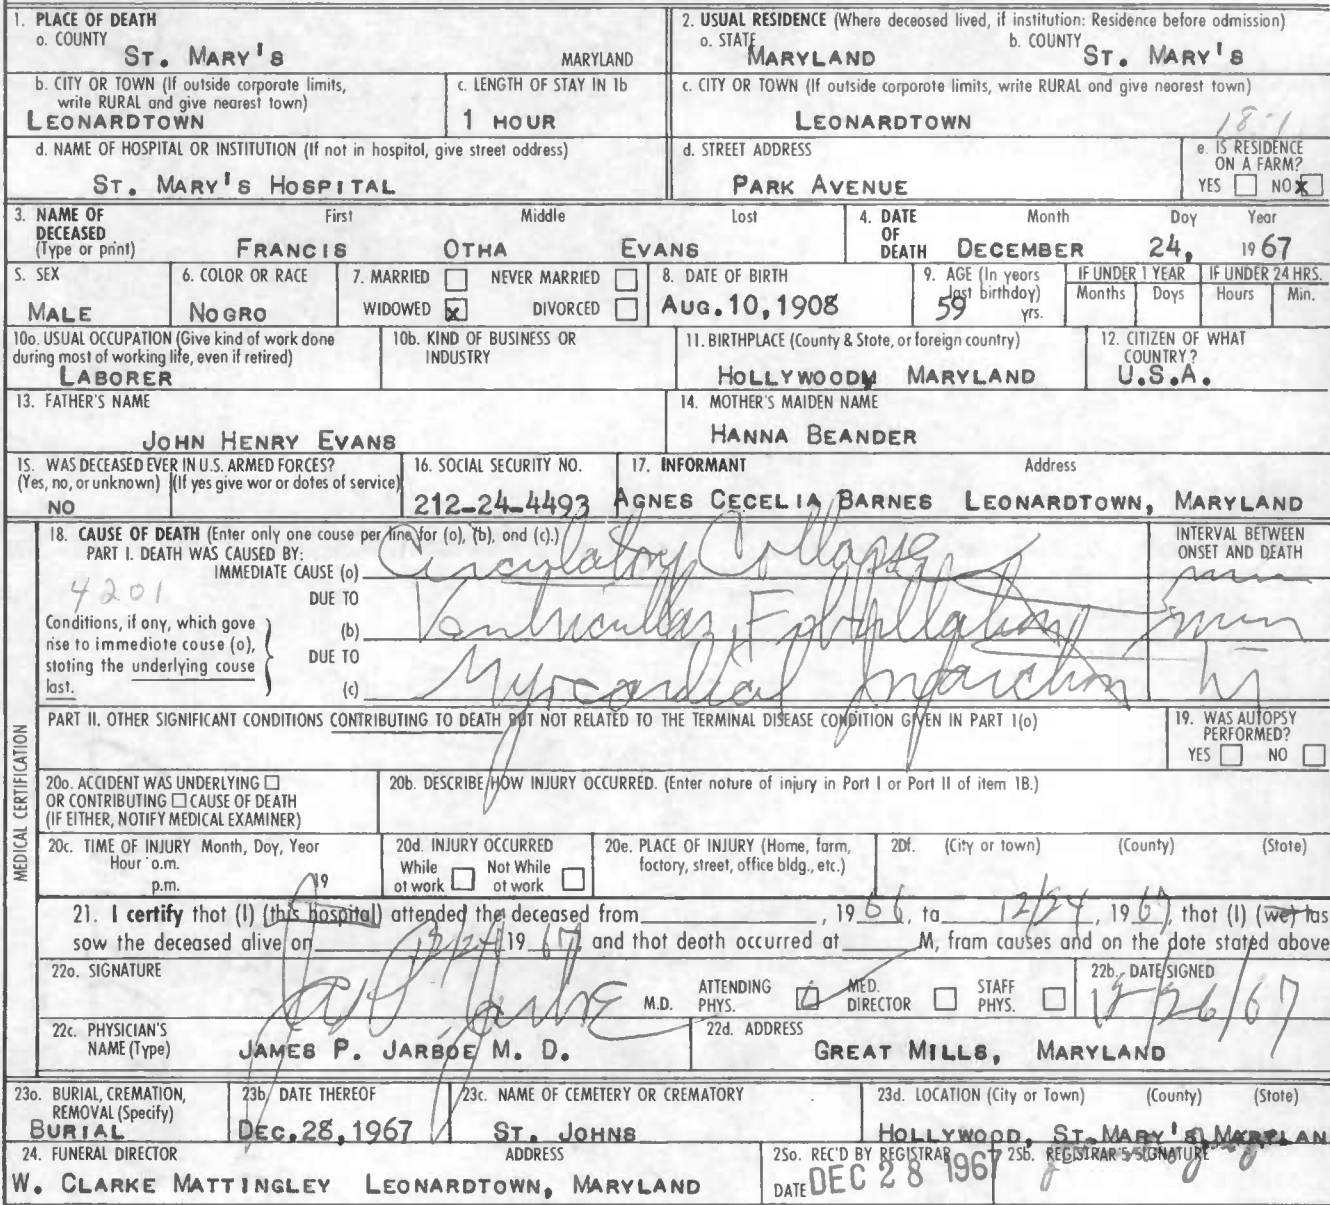 1. PLACE OF DEATH
a. COUNTY
ST. MARY'S MARYLAND
2. USUAL RESIDENCE (Where deceased lived, if institution: Residence before admission)
a. STATE b. COUNTY
MARYLAND ST. MARY'S
b. CITY OR TOWN (If outside corporate limits,
write RURAL and give nearest town)
LEONARDTOWN
c. LENGTH OF STAY IN 1b
1 HOUR
c. CITY OR TOWN (If outside corporate limits, write RURAL and give nearest town)
LEONARDTOWN
18-1
d. NAME OF HOSPITAL OR INSTITUTION (If not in hospital, give street address)
ST. MARY'S HOSPITAL
d. STREET ADDRESS
PARK AVENUE
e. IS RESIDENCE
ON A FARM?
YES NO X
3. NAME OF
DECEASED
(Type or print)
First Middle Last
FRANCIS OTHA EVANS
4. DATE
OF
DEATH
Month Day Year
DECEMBER 24, 1967
5. SEX
MALE
6. COLOR OR RACE
NOGRO
7. MARRIED NEVER MARRIED
WIDOWED X DIVORCED
8. DATE OF BIRTH
AUG. 10, 1908
9. AGE (In years
last birthday)
59 yrs.
IF UNDER 1 YEAR
Months Days
IF UNDER 24 HRS.
Hours Min.
10a. USUAL OCCUPATION (Give kind of work done
during most of working life, even if retired)
LABORER
10b. KIND OF BUSINESS OR
INDUSTRY
11. BIRTHPLACE (County & State, or foreign country)
HOLLYWOOD MARYLAND
12. CITIZEN OF WHAT
COUNTRY?
U.S.A.
13. FATHER'S NAME
JOHN HENRY EVANS
14. MOTHER'S MAIDEN NAME
HANNA BEANDER
15. WAS DECEASED EVER IN U.S. ARMED FORCES?
(Yes, no, or unknown) (If yes give war or dates of service)
NO
16. SOCIAL SECURITY NO.
212-24-4493
17. INFORMANT Address
AGNES CECELIA BARNES LEONARDTOWN, MARYLAND
MEDICAL CERTIFICATION
18. CAUSE OF DEATH (Enter only one cause per line for (a), (b), and (c).)
PART I. DEATH WAS CAUSED BY:
IMMEDIATE CAUSE (a) Circulatory Collapse
INTERVAL BETWEEN
ONSET AND DEATH
min
4201
Conditions, if any, which gave
rise to immediate cause (a),
stating the underlying cause
last.
DUE TO
(b) Ventricular Fibrillation min
DUE TO
(c) Myocardial Infarction hr
PART II. OTHER SIGNIFICANT CONDITIONS CONTRIBUTING TO DEATH BUT NOT RELATED TO THE TERMINAL DISEASE CONDITION GIVEN IN PART 1(a)
19. WAS AUTOPSY
PERFORMED?
YES NO
20a. ACCIDENT WAS UNDERLYING
OR CONTRIBUTING CAUSE OF DEATH
(IF EITHER, NOTIFY MEDICAL EXAMINER)
20b. DESCRIBE HOW INJURY OCCURRED. (Enter nature of injury in Part I or Part II of item 18.)
20c. TIME OF INJURY Month, Day, Year
Hour a.m.
p.m. 19
20d. INJURY OCCURRED
While Not While
at work at work
20e. PLACE OF INJURY (Home, farm,
factory, street, office bldg., etc.)
20f. (City or town) (County) (State)
21. I certify that (I) (this hospital) attended the deceased from , 1966, to 12/24, 1967, that (I) (we) las
saw the deceased alive on 12/24 1967, and that death occurred at M, from causes and on the date stated above
22a. SIGNATURE
M.D. ATTENDING
PHYS. MED.
DIRECTOR STAFF
PHYS.
22b. DATE SIGNED
12/26/67
22c. PHYSICIAN'S
NAME (Type)
JAMES P. JARBOE M. D.
22d. ADDRESS
GREAT MILLS, MARYLAND
23a. BURIAL, CREMATION,
REMOVAL (Specify)
BURIAL
23b. DATE THEREOF
DEC. 28, 1967
23c. NAME OF CEMETERY OR CREMATORY
ST. JOHNS
23d. LOCATION (City or Town) (County) (State)
HOLLYWOOD, ST. MARY'S, MARYLAN
24. FUNERAL DIRECTOR ADDRESS
W. CLARKE MATTINGLEY LEONARDTOWN, MARYLAND
25a. REC'D BY REGISTRAR
DATE DEC 28 1967
25b. REGISTRAR'S SIGNATURE